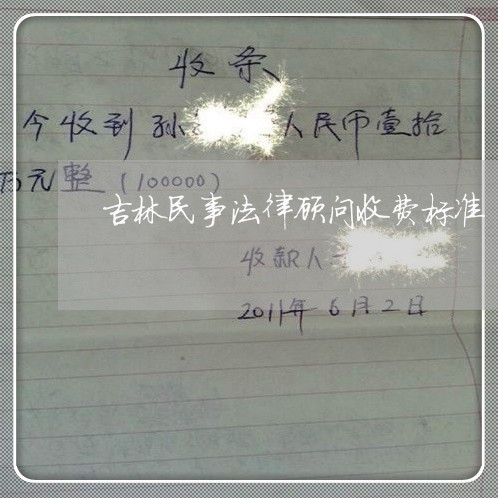 收条
今收到孙 人民币壹拾
万元整（100000）
吉林民事法律顾问收费标准
收款人
2011年6月2日